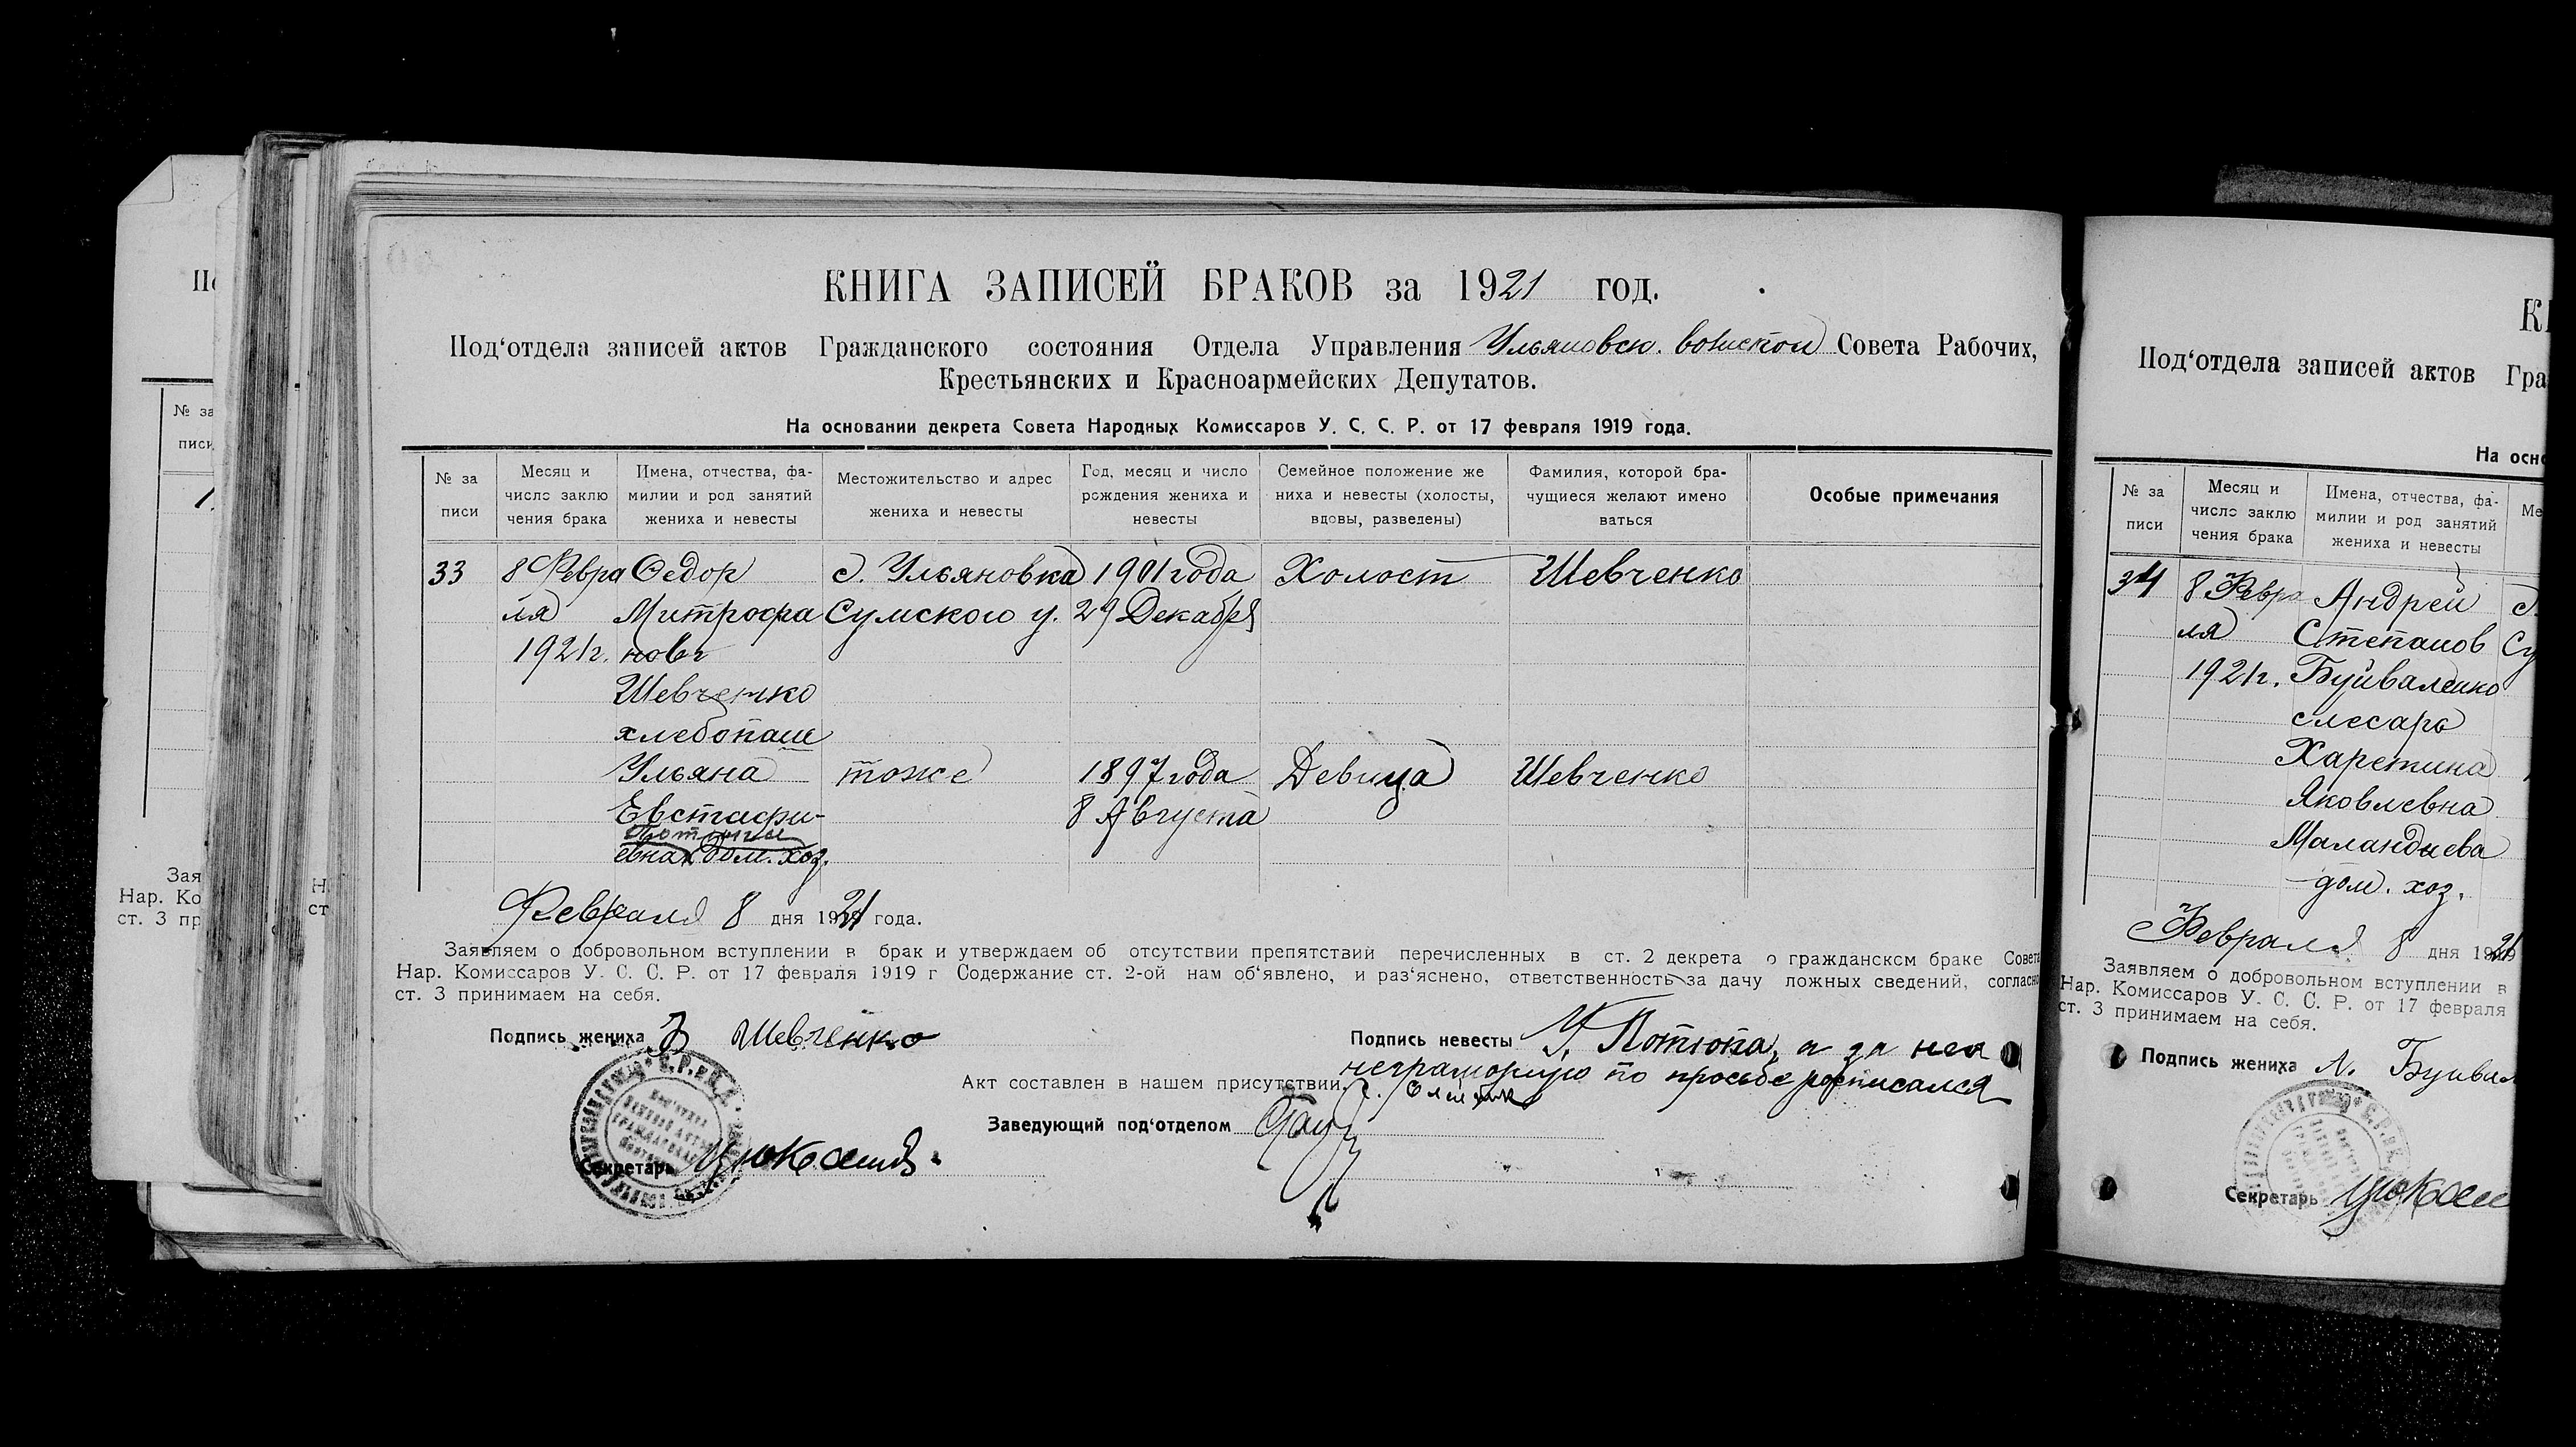 КНИГА ЗАПИСЕЙ БРАКОВ за 1921 год.
Под‘отдела записей актов Гражданского состояния Отдела Управления Ульяновск. Совета Рабочих,
Крестьянских и Красноармейских Депутатов.
На основании декрета Совета Народных Комиссаров У. С. С. Р. от 17 февраля 1919 года.
№ за
писи
Месяц и
число заклю
чения брака
Имена, отчества, фа-
милии и род занятий
жениха и невесты
Местожительство и адрес
жениха и невесты
Год, месяц и число
рождения жениха и
невесты
Семейное положение же
ниха и невесты (холосты,
вдовы, разведены)
Фамилия, которой бра-
чущиеся желают имено
ваться
Особые примечания
33 8 Февра Федор с. Ульяновка 1901 года Холост Шевченко
ля Митрофа Сумского у. 29 Декабря
1921 г. новч
Шевченко
хлебопаш
Ульяна тоже 1897 года Девица Шевченко
Евстафи- 8 Августа
евна дом. хоз.
Февраля 8 дня 1921 года.
Заявляем о добровольном вступлении в брак и утверждаем об отсутствии препятствий перечисленных в ст. 2 декрета о гражданском браке Совета
Нар. Комиссаров У. С. С. Р. от 17 февраля 1919 г Содержание ст. 2-ой нам об‘явлено, и раз‘яснено, ответственность за дачу ложных сведений, согласно
ст. 3 принимаем на себя.
Подпись жениха Ф Шевченко
Подпись невесты У. Потюпа, а за нея
неграмотную по просьбе росписался
Акт составлен в нашем присутствии
Заведующий под‘отделом
Секретарь
Пе
№ за
писи
1
Зая
Нар. Ко
ст. 3 пр
Н
ст
К
Под‘отдела записей актов Гра
На осно
№ за
писи
Месяц и
число заклю
чения брака
Имена, отчества, фа-
милии и род занятий
жениха и невесты
Ме
34 8 Февра Андрей с.
ля Степанов Су
1921 г. Буйваленко
слесарь
Харетина
Яковлевна
Маландиева
дом. хоз.
Февраля 8 дня 1921
Заявляем о добровольном вступлении в
Нар. Комиссаров У. С. С. Р. от 17 февраля
ст. 3 принимаем на себя.
Подпись жениха
Секретарь